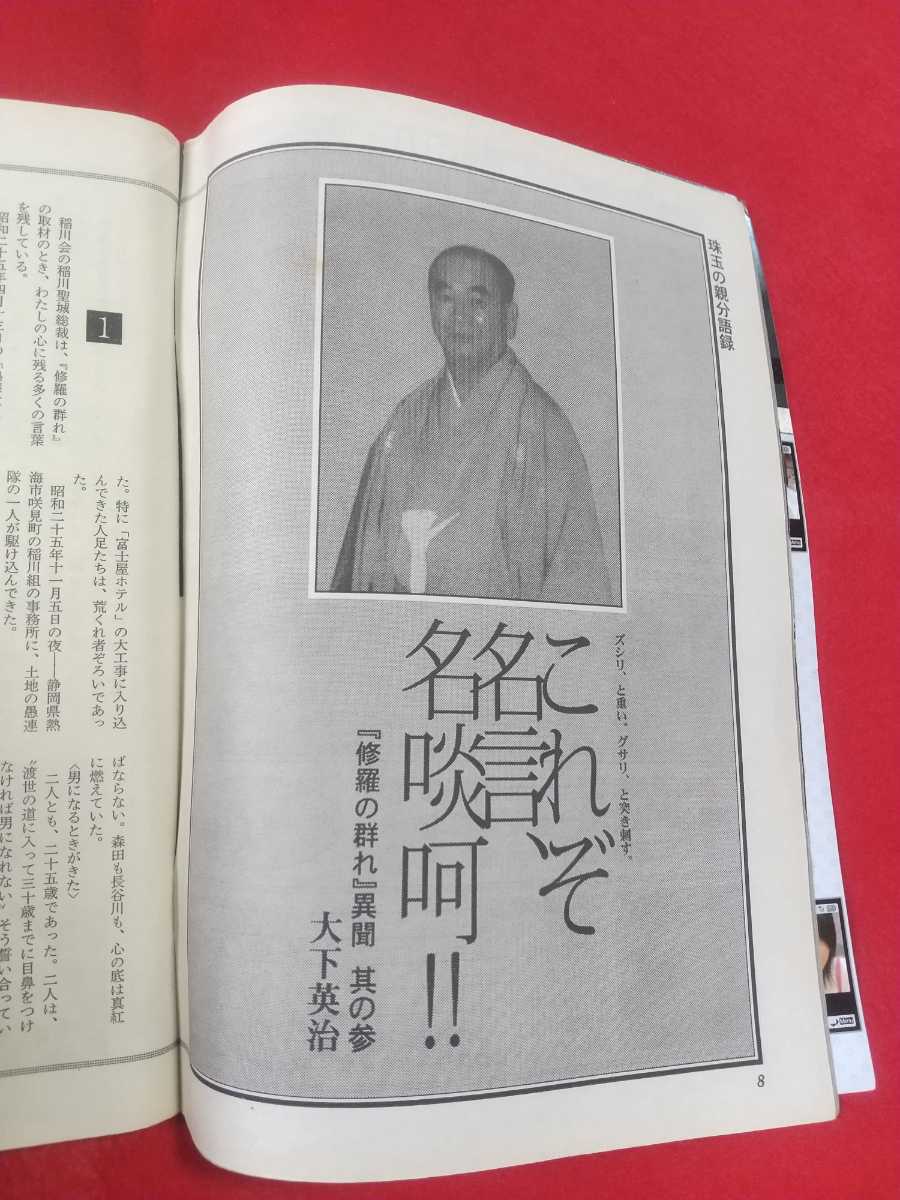 珠玉の親分語録
ズシリ、と重い。グサリ、と突き刺す。
これぞ
名言、
名啖呵!!
『修羅の群れ』異聞 其の参
大下英治
8
1
稲川会の稲川聖城総裁は、『修羅の群れ』
の取材のとき、わたしの心に残る多くの言葉
を残している。
た。特に「富士屋ホテル」の大工事に入り込
んできた人足たちは、荒くれ者ぞろいであっ
た。
昭和二十五年十一月五日の夜——静岡県熱
海市咲見町の稲川組の事務所に、土地の愚連
隊の一人が駆け込んできた。
ばならない。森田も長谷川も、心の底は真紅
に燃えていた。
〈男になるときがきた〉
二人とも、二十五歳であった。二人は、
〝渡世の道に入って三十歳までに目鼻をつけ
なければ男になれない〟そう誓い合ってい